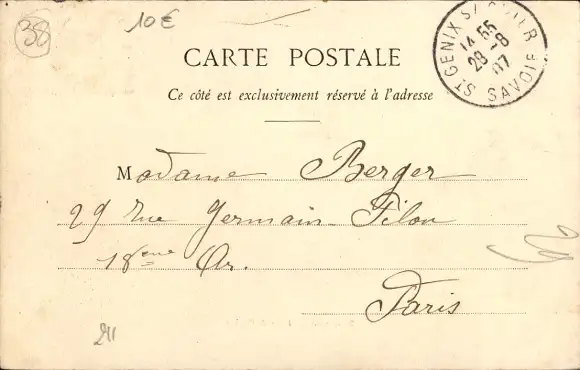 38
10€
CARTE POSTALE
Ce côté est exclusivement réservé à l'adresse
ST GENIX S/ GUIER
14 55
28 -8
07
SAVOIE
Madame Berger
29 rue Germain Pilon
18eme Ar.
Paris